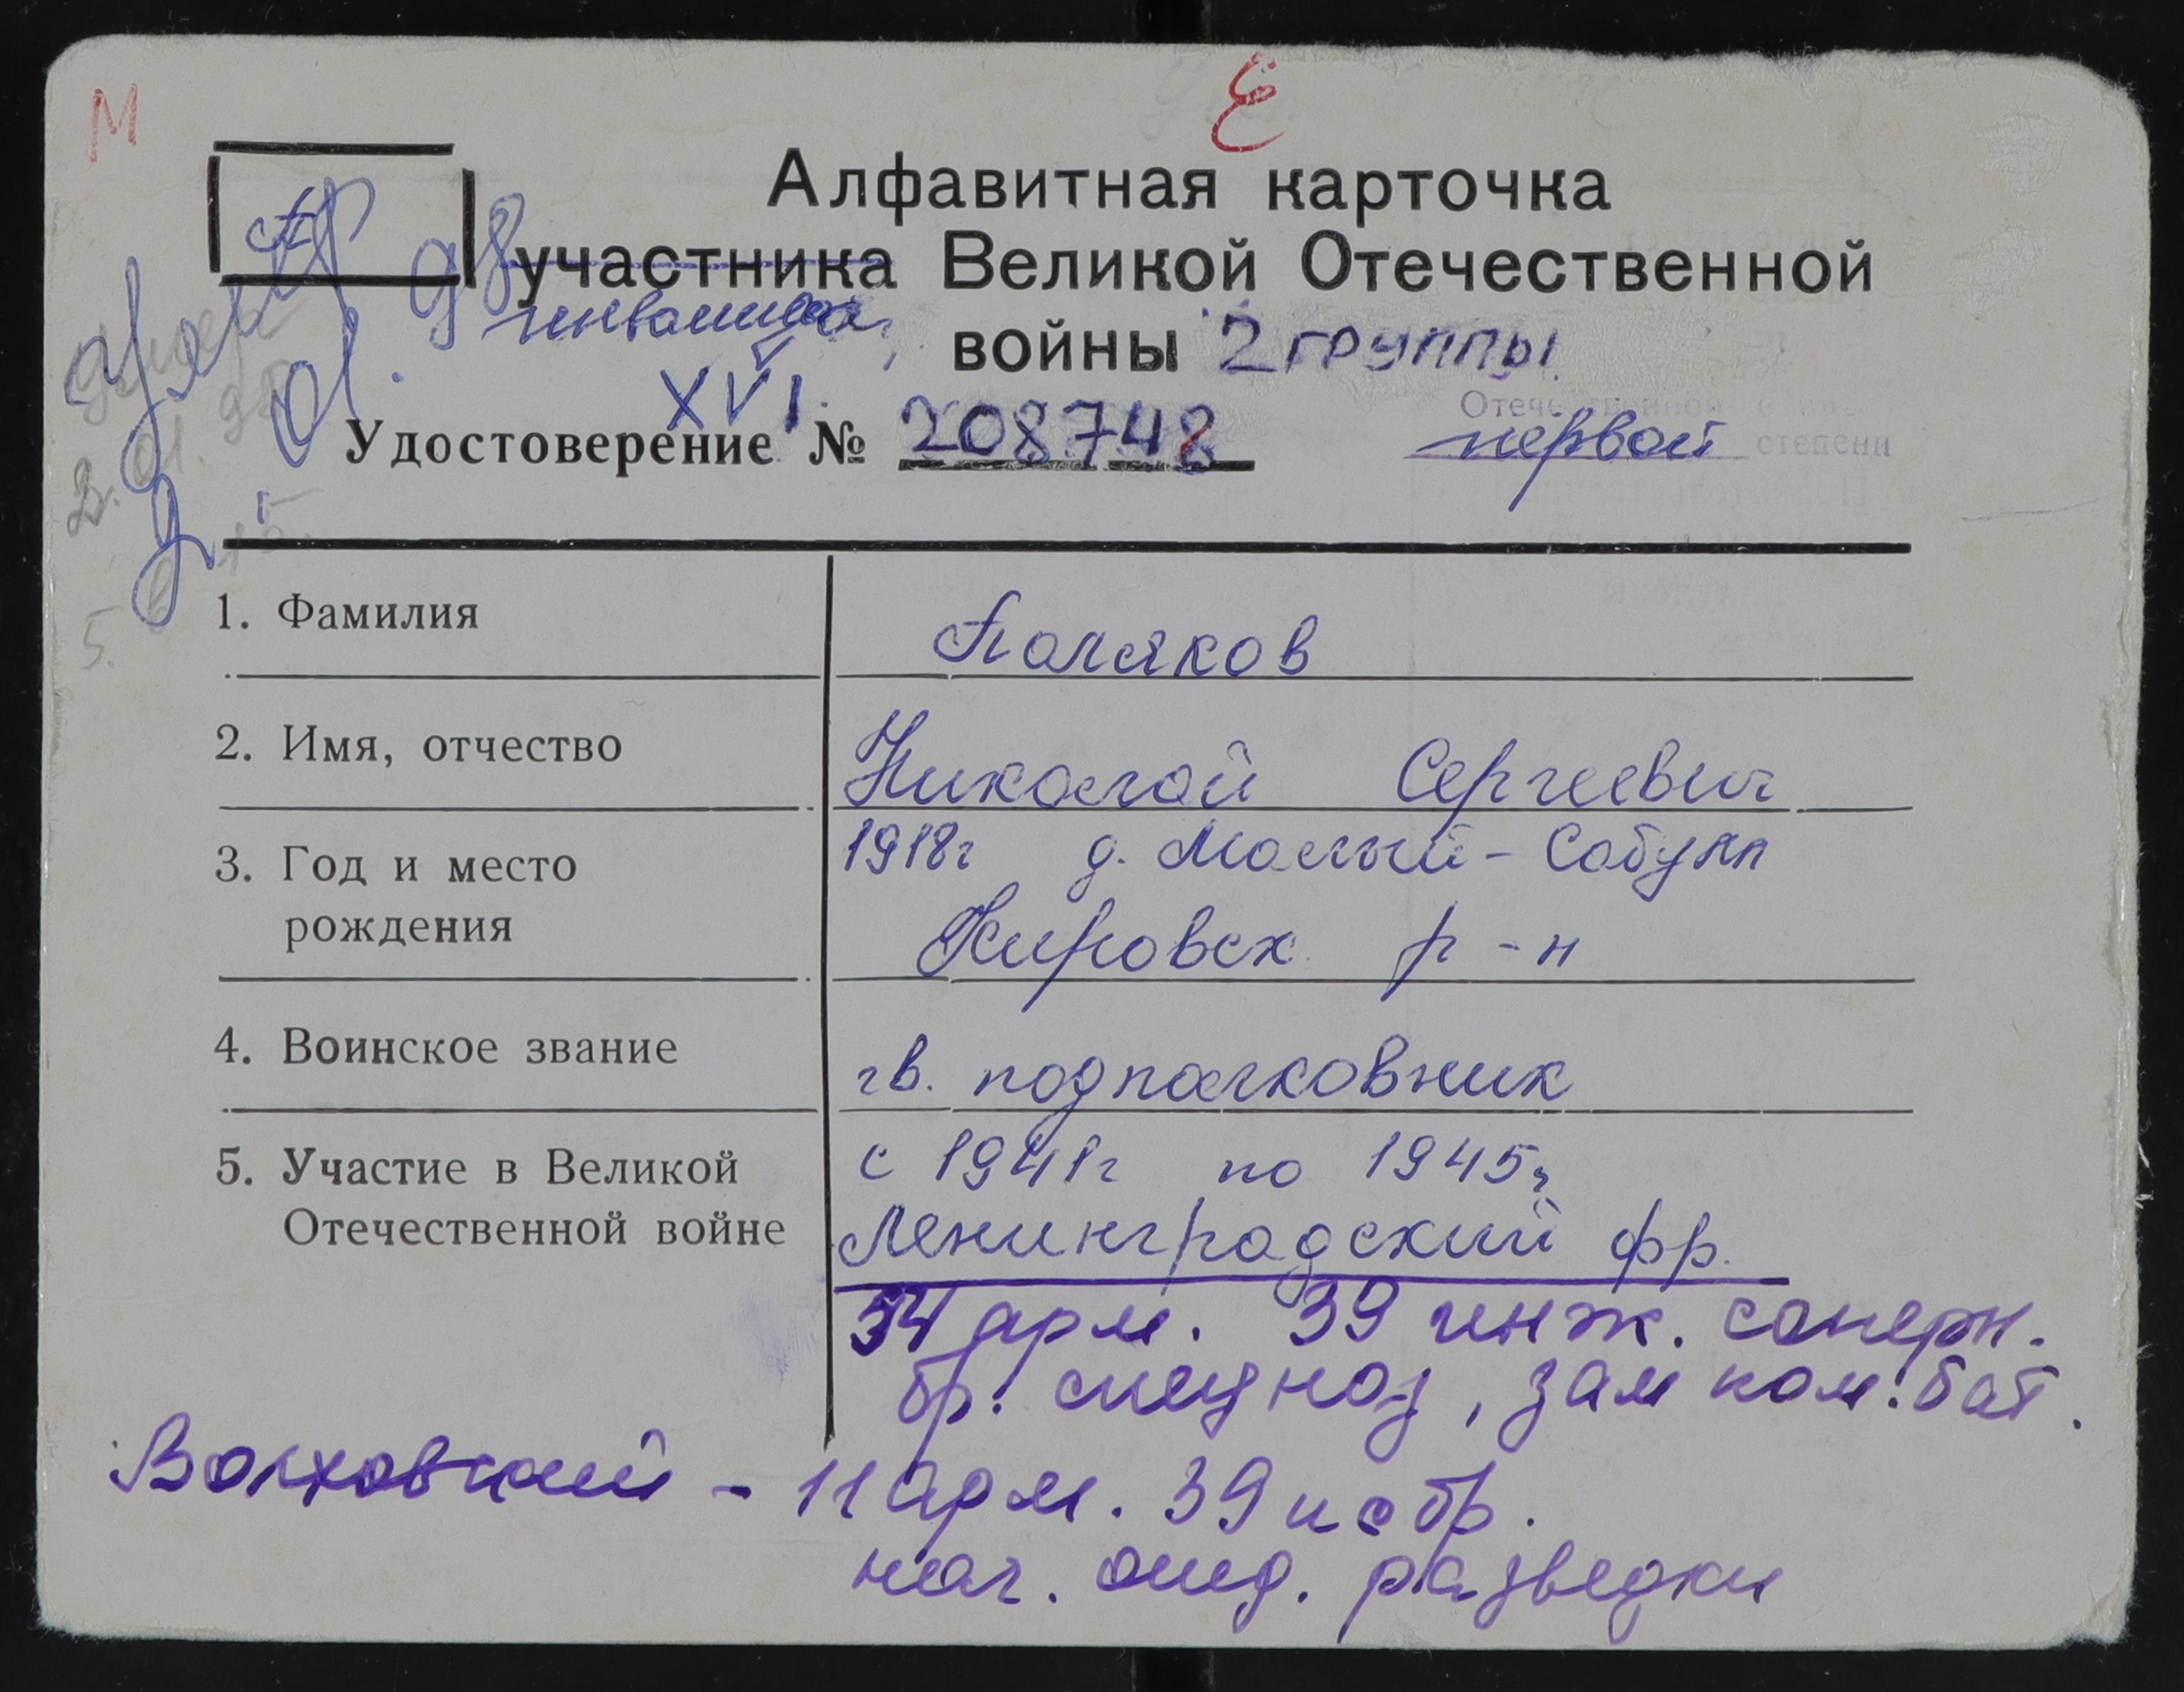 М
Е
АР 98
Алфавитная карточка
участника Великой Отечественной
инвалида
войны 2 группы
XVI
Удостоверение № 208748
Отечественной войны
первой степени
1. Фамилия
Поляков
2. Имя, отчество
Николай Сергеевич
3. Год и место
рождения
1918г д. Малый-Сабукп
Кировск. р-н
4. Воинское звание
гв. подполковник
5. Участие в Великой
Отечественной войне
с 1941г по 1945г
Ленинградский фр.
54 арм. 39 инж. саперн.
бр. спецназ, зам ком. бат.
Волховский - 11 арм. 39 исбр.
нач. отд. разведки